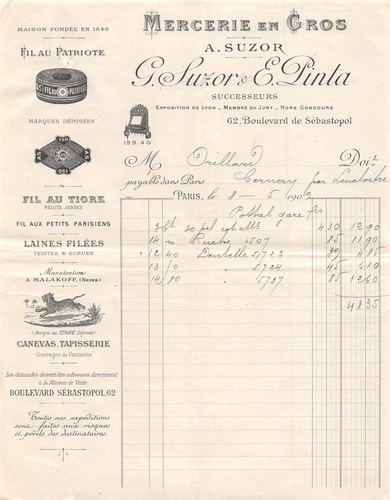 MAISON FONDÉE EN 1840
FIL AU PATRIOTE
FIL AU PATRIOTE
MARQUES DÉPOSÉES
150
150
FIL AU TIGRE
PELOTE JERSEY
FIL AUX PETITS PARISIENS
LAINES FILÉES
TEINTES & ÉCRUES
Manutention
A MALAKOFF, (SEINE.)
(Marque au TIGRE Déposée)
CANEVAS, TAPISSERIE
Ouvrages de Fantaisie
Les demandes doivent être adressées directement
à la Maison de Vente
BOULEVARD SÉBASTOPOL, 62
Toutes nos expéditions
sont faites aux risques
et périls des destinataires.
MERCERIE EN GROS
A. SUZOR
G. Suzor & E. Pinta
SUCCESSEURS
EXPOSITION DE LYON - MEMBRE DU JURY - HORS CONCOURS
62, Boulevard de Sébastopol
159.40
M Drillard Doit
payable dans Paris Cernay par
PARIS, le 8 - 5 190
gare
30 fil 430 1290
14 m Ruche 4507 85 1190
12/40 Dentelle 5/723 485
13/0 " 5724 45 610
14/80 " 5737 85 1260
4835